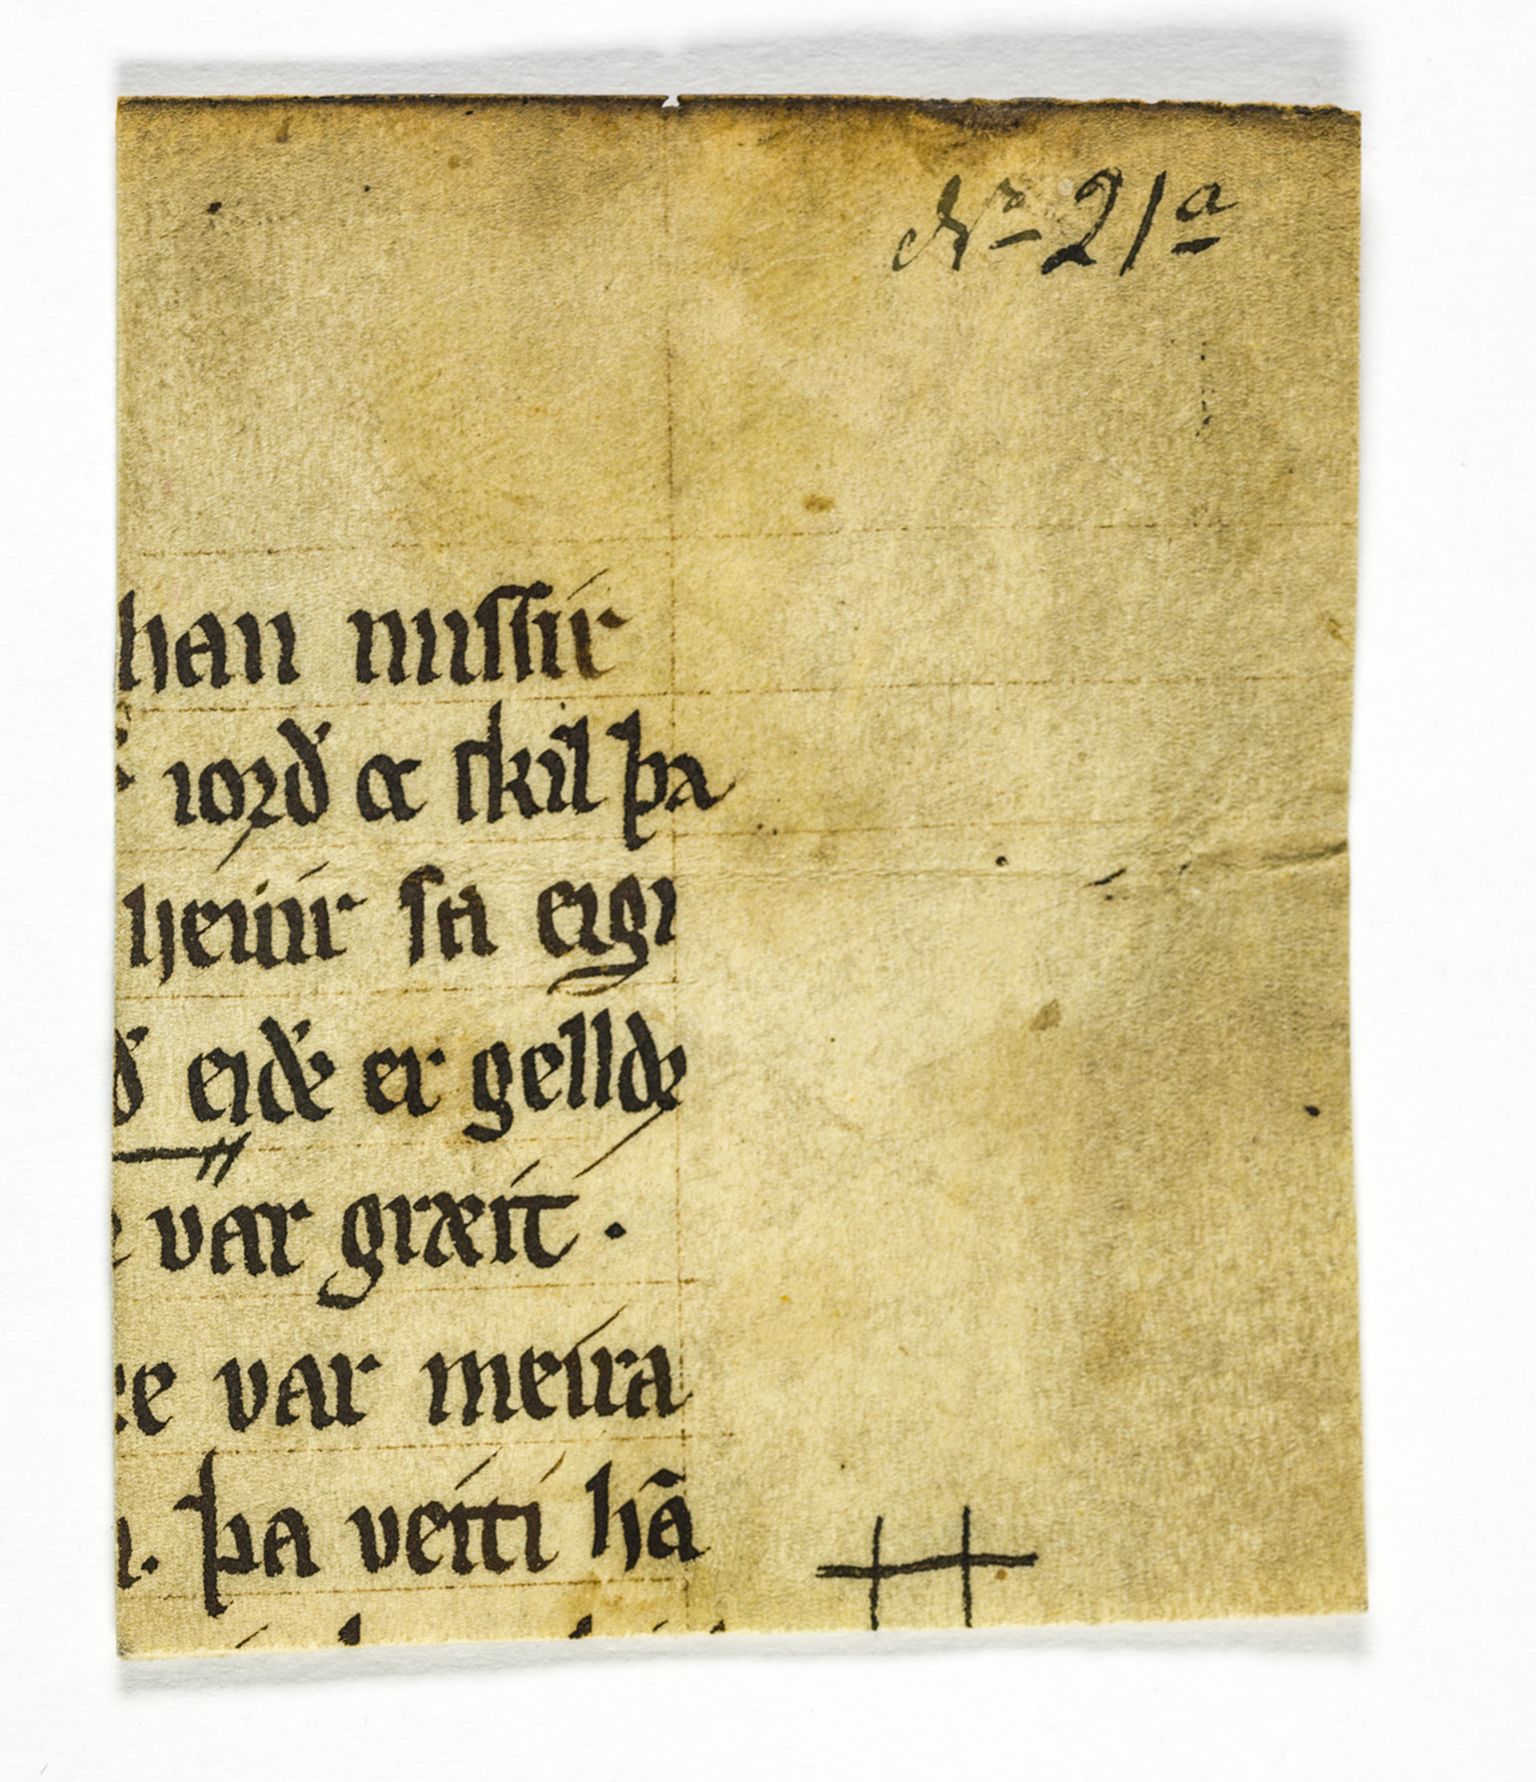 No 21a
han missir
iorð oc skil þa
hevir sa eigi
ð eiðe er gellde
e var græit .
re var meira
. þa veitti hā